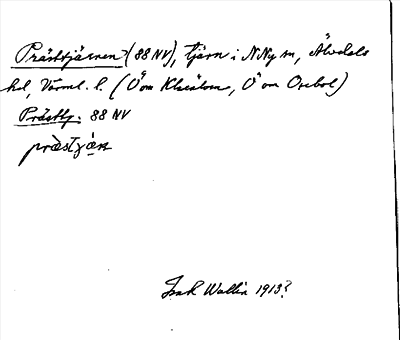 Prästtjärnen (88 NV), tjärn i N Ny sn, Älvdals
hd, Värml. l. (Ö om Klarälven, Ö om
Prästtj. 88 NV
præstjæn
Isak Wallin 1913?